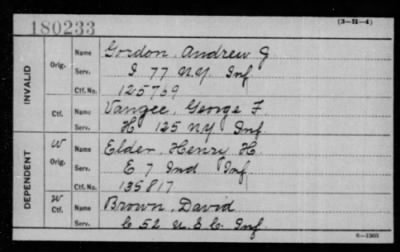 180233 (3-H-4)
INVALID
Orig. Name Gordon, Andrew J
Serv. I 77 N.Y. Inf
Ctf. No. 125769
Ctf. Name Vanzee, George F.
Serv. H 125 NY Inf
DEPENDENT
W
Orig. Name Elder, Henry H.
Serv. E 7 Ind Inf
Ctf. No. 135817
W
Ctf. Name Brown, David
Serv. C 52 U.S.C. Inf.